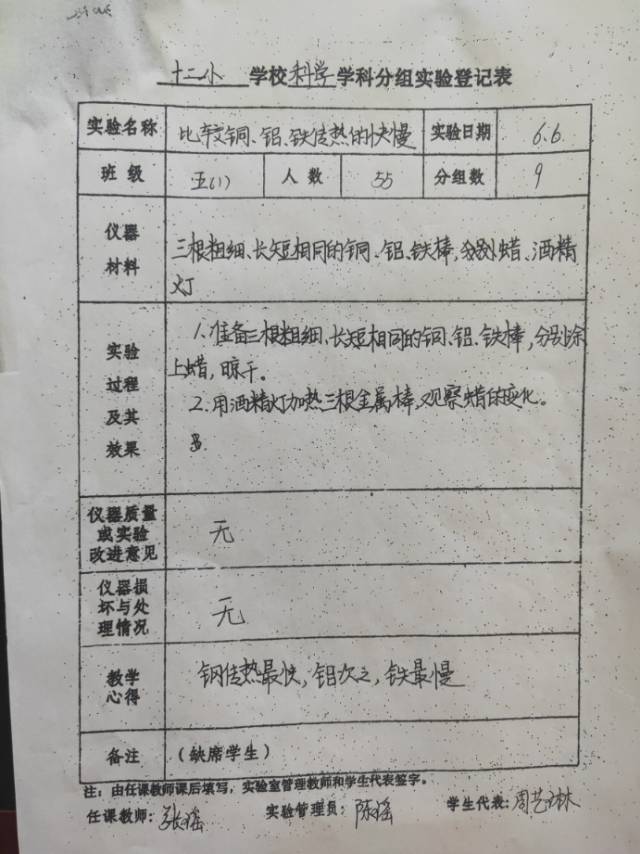 十二小 学校科学学科分组实验登记表
实验名称 比较铜、铝、铁传热的快慢 实验日期 6.6
班 级 五(1) 人 数 55 分组数 9
仪器
材料
三根粗细、长短相同的铜、铝、铁棒,分别蜡、酒精
灯
实验
过程
及其
效果
1.准备三根粗细、长短相同的铜、铝、铁棒,分别涂
上蜡,晾干。
2.用酒精灯加热三根金属棒,观察蜡的变化。
仪器质量
或实验
改进意见
无
仪器损
坏与处
理情况
无
教学
心得
铜传热最快,铝次之,铁最慢
备注 (缺席学生)
注:由任课教师课后填写,实验室管理教师和学生代表签字。
任课教师:张瑶 实验管理员:陈瑶 学生代表:周艺琳